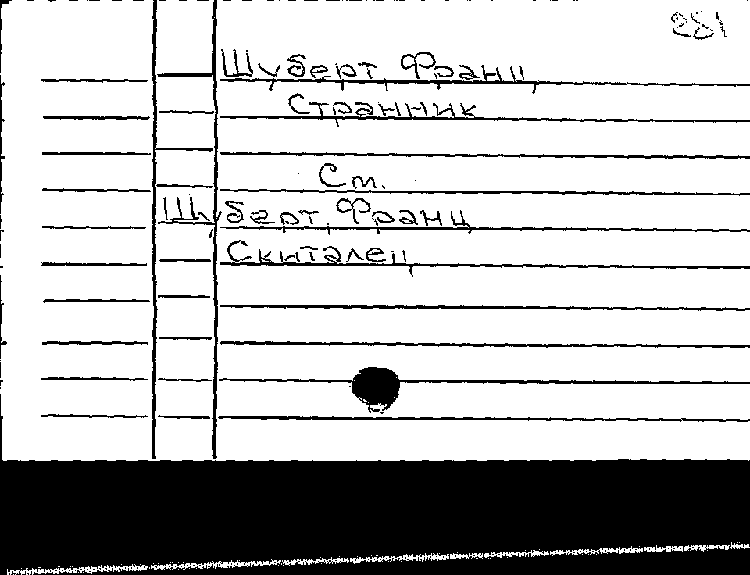 281
Шуберт, Франц
Странник
См.
Шуберт, Франц
Скиталец